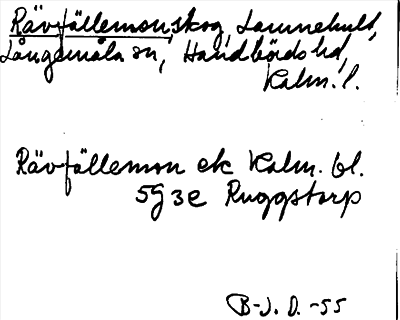 Rävfällemon, skog, Lammehult,
Långemåla sn, Handbörds hd,
Kalm. l.
Rävfällemon ek Kalm. bl.
5G3e Ruggstorp
B-J. D. -55